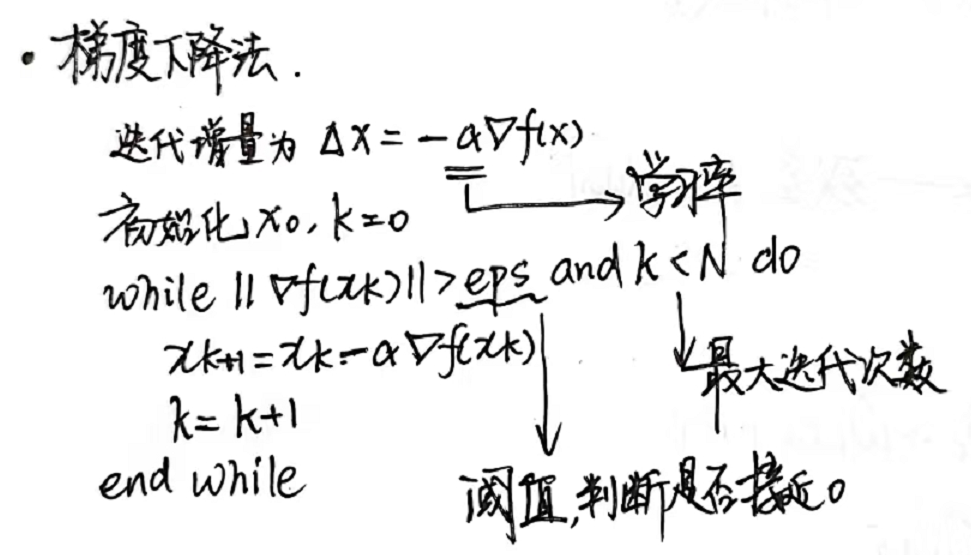 · 梯度下降法.
迭代增量为 Δx = -α∇f(x)
学习率
初始化x0, k=0
while ||∇f(xk)||>eps and k<N do
xk+1=xk-α∇f(xk)
最大迭代次数
k=k+1
end while
阈值,判断是否接近0